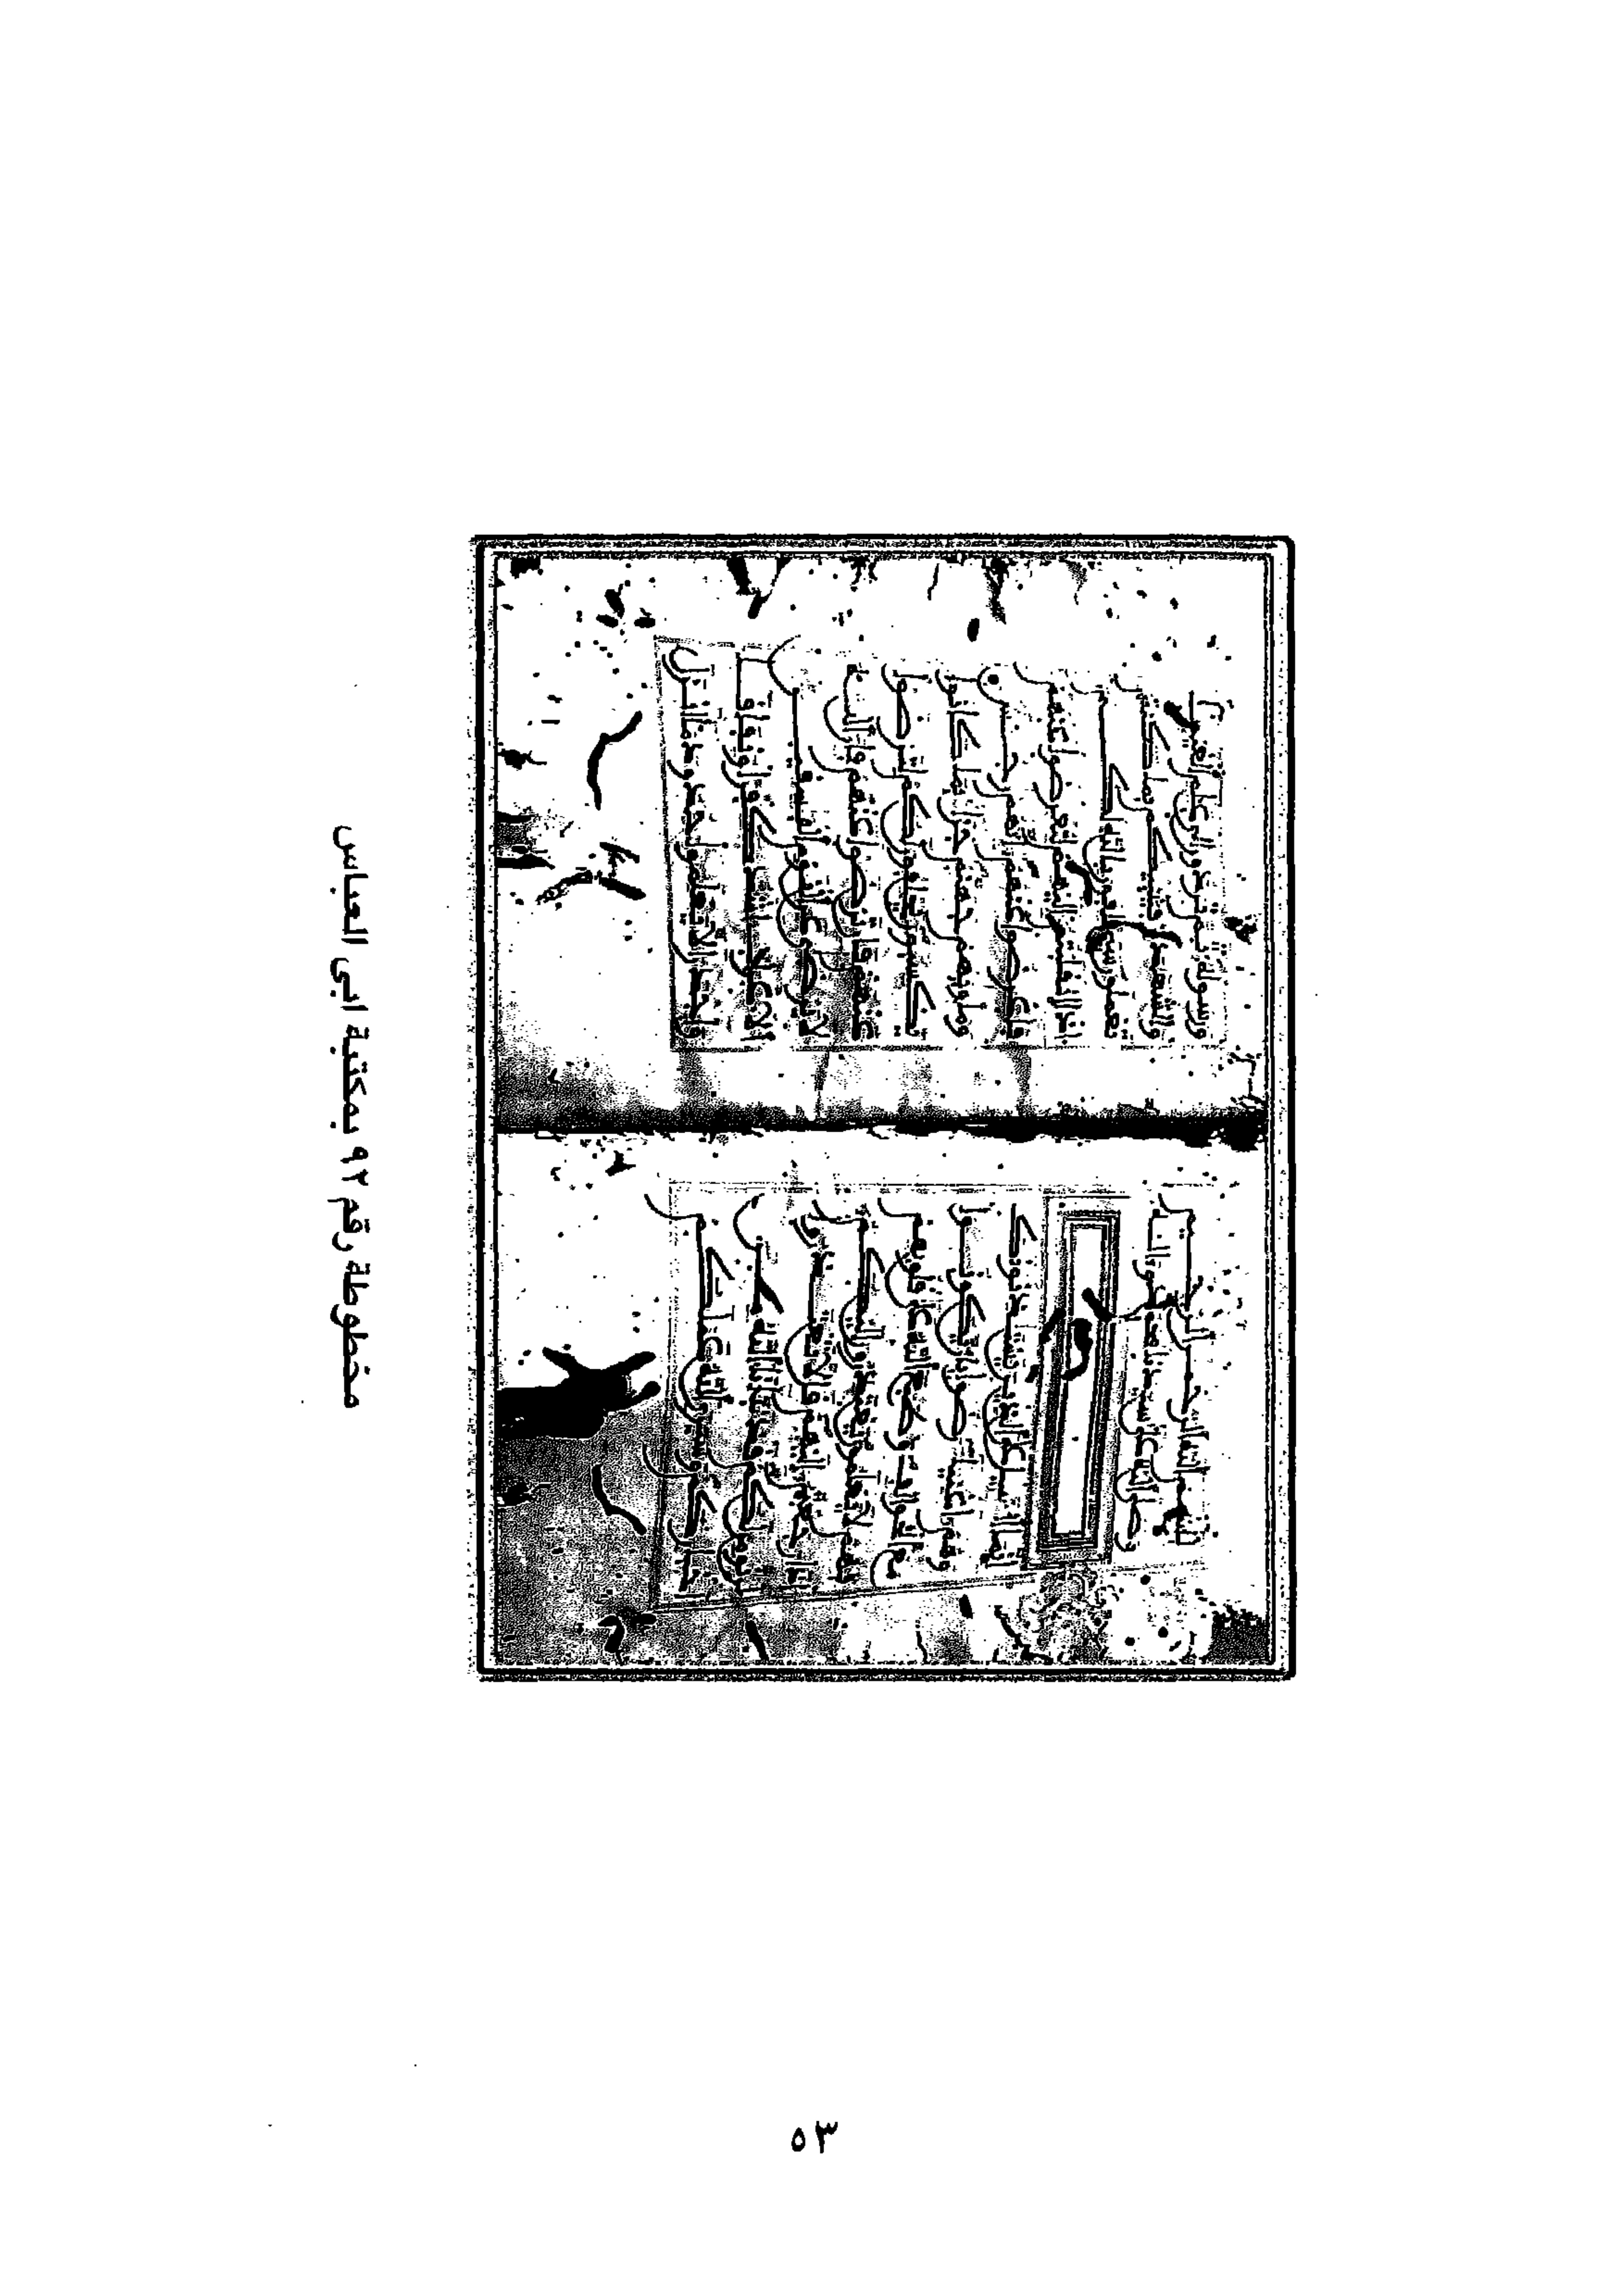 انما السبيل على الذين يستـذنونك
وهم اغنيا رضوا بان يكونوا
مع الخوالف وطبع الله على قلوبهم
فهم لا يعلمون يعتذرون اليكم
اذا رجعتم اليهم قل لا تعتذروا
لن نومن لكم قد نبانا الله من
اخباركم وسيرى الله عملكم
ورسوله ثم تردون الى علم الغيب
والشهدة فينبيكم بما كنتم
تعملون سيحلفون بالله لكم
اذا انقلبتم اليهم لتعرضوا عنهم
فاعرضوا عنهم انهم رجس
وماويهم جهنم جزا بما كانوا
يكسبون يحلفون لكم لترضوا
عنهم فان ترضوا عنهم فان الله
لا يرضى عن القوم الفسقين
الاعراب اشد كفرا ونفاقا
واجدر الا يعلموا حدود ما انزل
مخطوطة رقم ٩٢ بمكتبة ابى العباس
٥٣